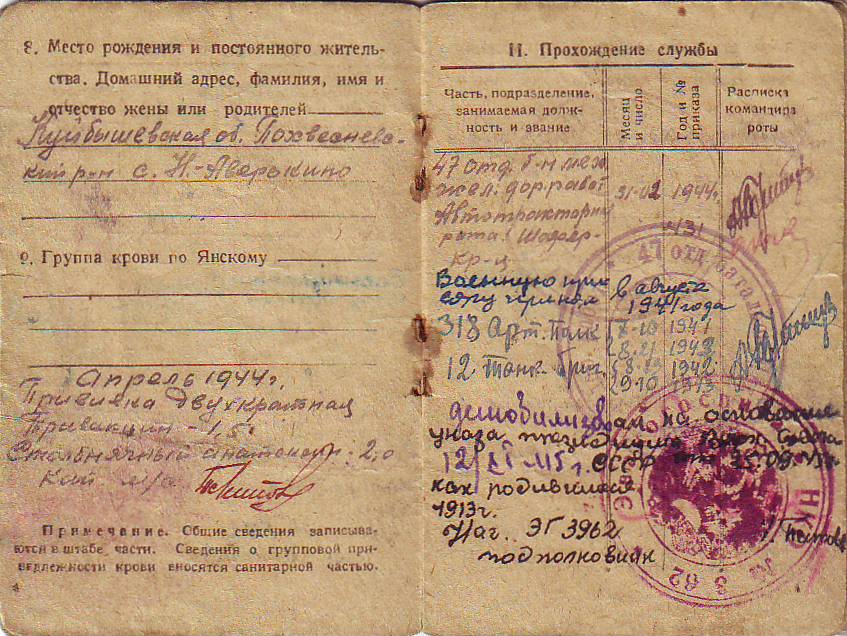 8. Место рождения и постоянного житель-
ства. Домашний адрес, фамилия, имя и
отчество жены или родителей
Куйбышевская об. Похвеснева-
кий р-н с. Н.-Аверькино
9. Группа крови по Янскому
Апрель 1944 г.
Прививка двухкратная
1,5
Столбнячный анатоксин 2,0
Примечание. Общие сведения записыва-
ются в штабе части. Сведения о групповой при-
надлежности крови вносятся санитарной частью.
II. Прохождение службы
Часть, подразделение, занимаемая долж-
ность и звание
Месяц и число
Год и № приказа
Расписка командира роты
47 отд. б-н мех
жел. дор. работ 31-02 1944г.
Автотракторн
рота. Шофер- 131
кр-ц
Военную при в августе
сягу принял 1941 года
318 Арт. Полк 1941
12 Танк. бриг.
29.10
47 отд. батал
демобилизован на основание
указа президиума Верх. Совета
12/XI 45 г. СССР от 25.09.45г
как родившийся
1913г.
Нач. ЭГ 3962
подполковник
НКО